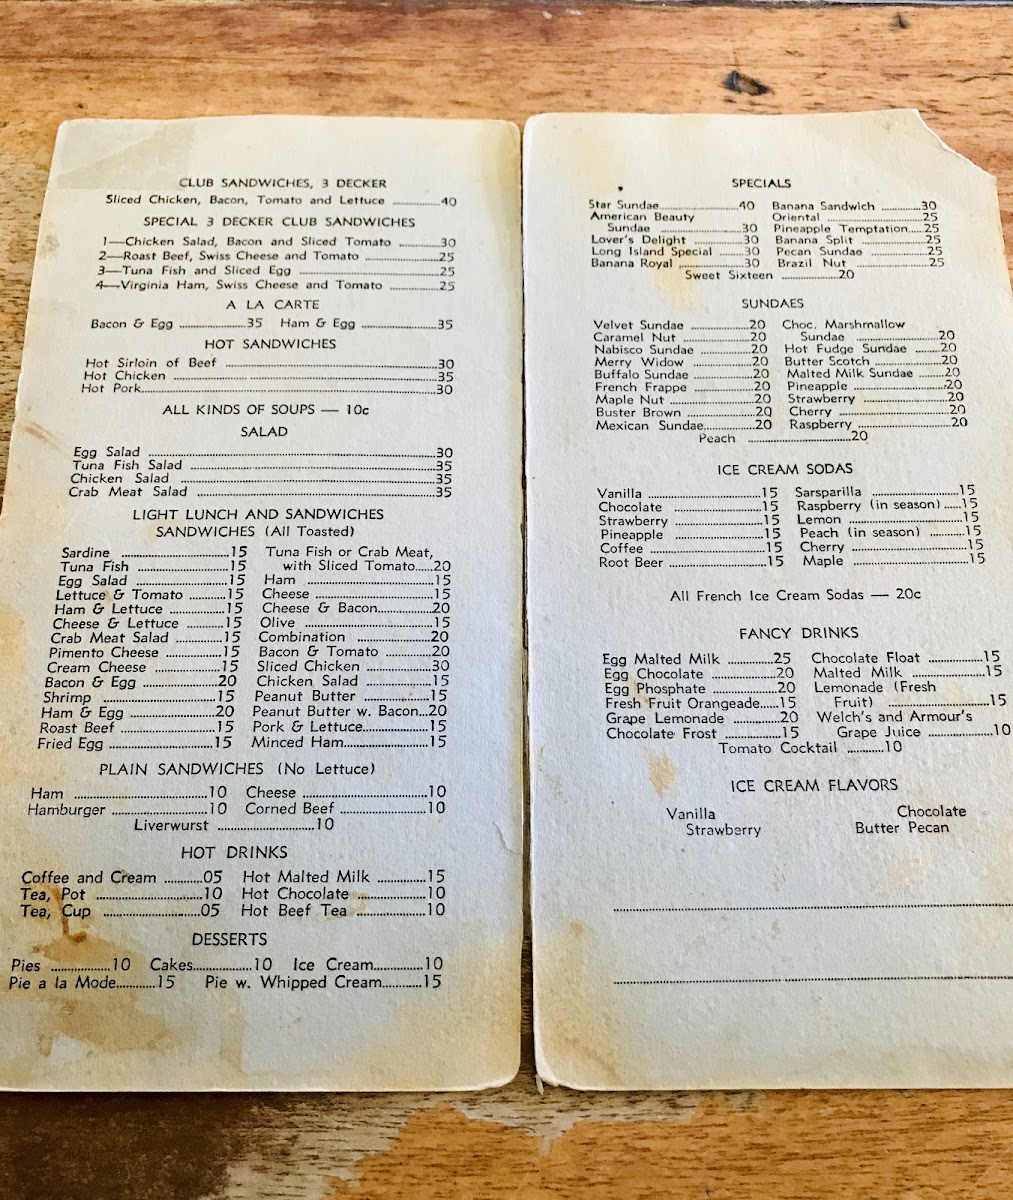 CLUB SANDWICHES, 3 DECKER
Sliced Chicken, Bacon, Tomato and Lettuce ..........40
SPECIAL 3 DECKER CLUB SANDWICHES
1—Chicken Salad, Bacon and Sliced Tomato ..........30
2—Roast Beef, Swiss Cheese and Tomato ..........25
3—Tuna Fish and Sliced Egg ..........25
4—Virginia Ham, Swiss Cheese and Tomato ..........25
A LA CARTE
Bacon & Egg ..........35 Ham & Egg ..........35
HOT SANDWICHES
Hot Sirloin of Beef ..........30
Hot Chicken ..........35
Hot Pork..........30
ALL KINDS OF SOUPS — 10c
SALAD
Egg Salad ..........30
Tuna Fish Salad ..........35
Chicken Salad ..........35
Crab Meat Salad ..........35
LIGHT LUNCH AND SANDWICHES
SANDWICHES (All Toasted)
Sardine ..........15
Tuna Fish ..........15
Egg Salad ..........15
Lettuce & Tomato ..........15
Ham & Lettuce ..........15
Cheese & Lettuce ..........15
Crab Meat Salad ..........15
Pimento Cheese ..........15
Cream Cheese ..........15
Bacon & Egg ..........20
Shrimp ..........15
Ham & Egg ..........20
Roast Beef ..........15
Fried Egg ..........15
Tuna Fish or Crab Meat,
with Sliced Tomato....20
Ham ..........15
Cheese ..........15
Cheese & Bacon..........20
Olive ..........15
Combination ..........20
Bacon & Tomato ..........20
Sliced Chicken ..........30
Chicken Salad ..........15
Peanut Butter ..........15
Peanut Butter w. Bacon...20
Pork & Lettuce..........15
Minced Ham..........15
PLAIN SANDWICHES (No Lettuce)
Ham ..........10 Cheese ..........10
Hamburger ..........10 Corned Beef ..........10
Liverwurst ..........10
HOT DRINKS
Coffee and Cream ..........05 Hot Malted Milk ..........15
Tea, Pot ..........10 Hot Chocolate ..........10
Tea, Cup ..........05 Hot Beef Tea ..........10
DESSERTS
Pies ..........10 Cakes..........10 Ice Cream..........10
Pie a la Mode..........15 Pie w. Whipped Cream..........15
SPECIALS
Star Sundae..........40
American Beauty
Sundae ..........30
Lover's Delight ..........30
Long Island Special ......30
Banana Royal ..........30
Banana Sandwich ..........30
Oriental ..........25
Pineapple Temptation....25
Banana Split ..........25
Pecan Sundae ..........25
Brazil Nut ..........25
Sweet Sixteen ..........20
SUNDAES
Velvet Sundae ..........20
Caramel Nut ..........20
Nabisco Sundae ..........20
Merry Widow ..........20
Buffalo Sundae ..........20
French Frappe ..........20
Maple Nut ..........20
Buster Brown ..........20
Mexican Sundae..........20
Choc. Marshmallow
Sundae ..........20
Hot Fudge Sundae ..........20
Butter Scotch ..........20
Malted Milk Sundae .......20
Pineapple ..........20
Strawberry ..........20
Cherry ..........20
Raspberry ..........20
Peach ..........20
ICE CREAM SODAS
Vanilla ..........15
Chocolate ..........15
Strawberry ..........15
Pineapple ..........15
Coffee ..........15
Root Beer ..........15
Sarsparilla ..........15
Raspberry (in season) .....15
Lemon ..........15
Peach (in season) ..........15
Cherry ..........15
Maple ..........15
All French Ice Cream Sodas — 20c
FANCY DRINKS
Egg Malted Milk ..........25
Egg Chocolate ..........20
Egg Phosphate ..........20
Fresh Fruit Orangeade.....15
Grape Lemonade ..........20
Chocolate Frost ..........15
Chocolate Float ..........15
Malted Milk ..........15
Lemonade (Fresh
Fruit) ..........15
Welch's and Armour's
Grape Juice ..........10
Tomato Cocktail ..........10
ICE CREAM FLAVORS
Vanilla Chocolate
Strawberry Butter Pecan